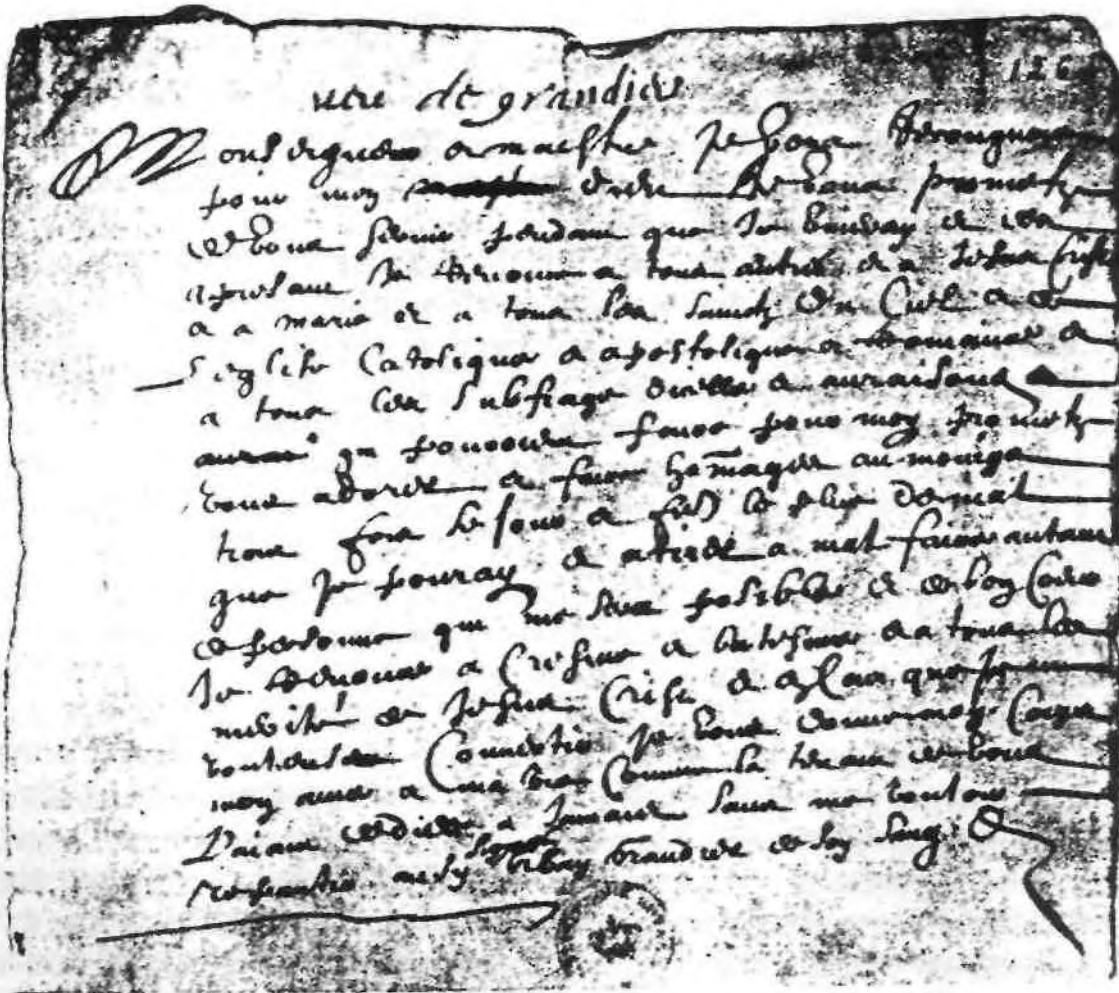 126
de grandier
Monseigneur et maestre je vous recongnois
pour mon dieu et vous prometz
de vous servir pendant que je vivray et des
apresant je renonce a tous autres et a Jesus Crist
et a marie et a tous les saincts du Ciel et a
l'eglise Catolique et apostolique et Romaine et
a tous les subfrages dicelle et auraisons
qui pouroient faire pour moy prometz
vous adorer et faire hommages au moings
trois fois le jour et fere le plus de mal
que je pouray et atirer a mal faire autant
de personne qui me sera posible et de bon Coeur
je renonce a Cresme et batesme et a tous les
merité de Jesus Crist et au Cas que je
Convertir je vous donne mon Corps
mon ame et ma vie Comme la tenant de vous
l'aiant dediee a jamais sans me vouloir
repantir Urbain Grandier de son sang